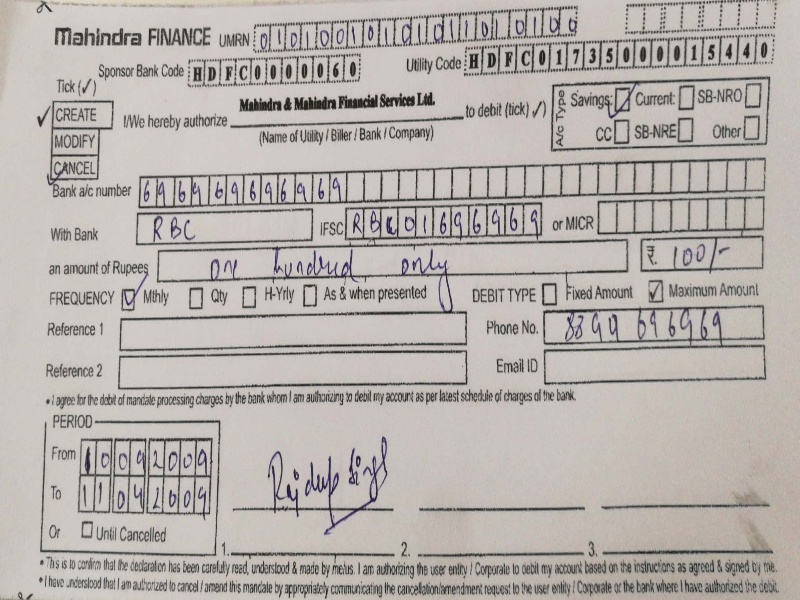 Mahindra FINANCE UMRN 01010010101011010100
Sponsor Bank Code HDFC0000060 Utility Code HDFC01735000015440
Tick (✓)
CREATE
MODIFY
CANCEL
I/We hereby authorize Mahindra & Mahindra Financial Services Ltd. to debit (tick ✓)
(Name of Utility / Biller / Bank / Company)
A/c Type Savings Current SB-NRO
CC SB-NRE Other
Bank a/c number 696969696969
With Bank RBC IFSC or MICR
an amount of Rupees one hundred only ₹. 100/-
FREQUENCY Mthly Qty H-Yrly As & when presented DEBIT TYPE Fixed Amount Maximum Amount
Reference 1 Phone No. 8899 696969
Reference 2 Email ID
• I agree for the debit of mandate processing charges by the bank whom I am authorizing to debit my account as per latest schedule of charges of the bank.
PERIOD
From 10092009
To 11042009
Or Until Cancelled
Rajdeep Singh
1. 2. 3.
• This is to confirm that the declaration has been carefully read, understood & made by me/us. I am authorizing the user entity / Corporate to debit my account based on the instructions as agreed & signed by me.
• I have understood that I am authorized to cancel / amend this mandate by appropriately communicating the cancellation/amendment request to the user entity / Corporate or the bank where I have authorized the debit.